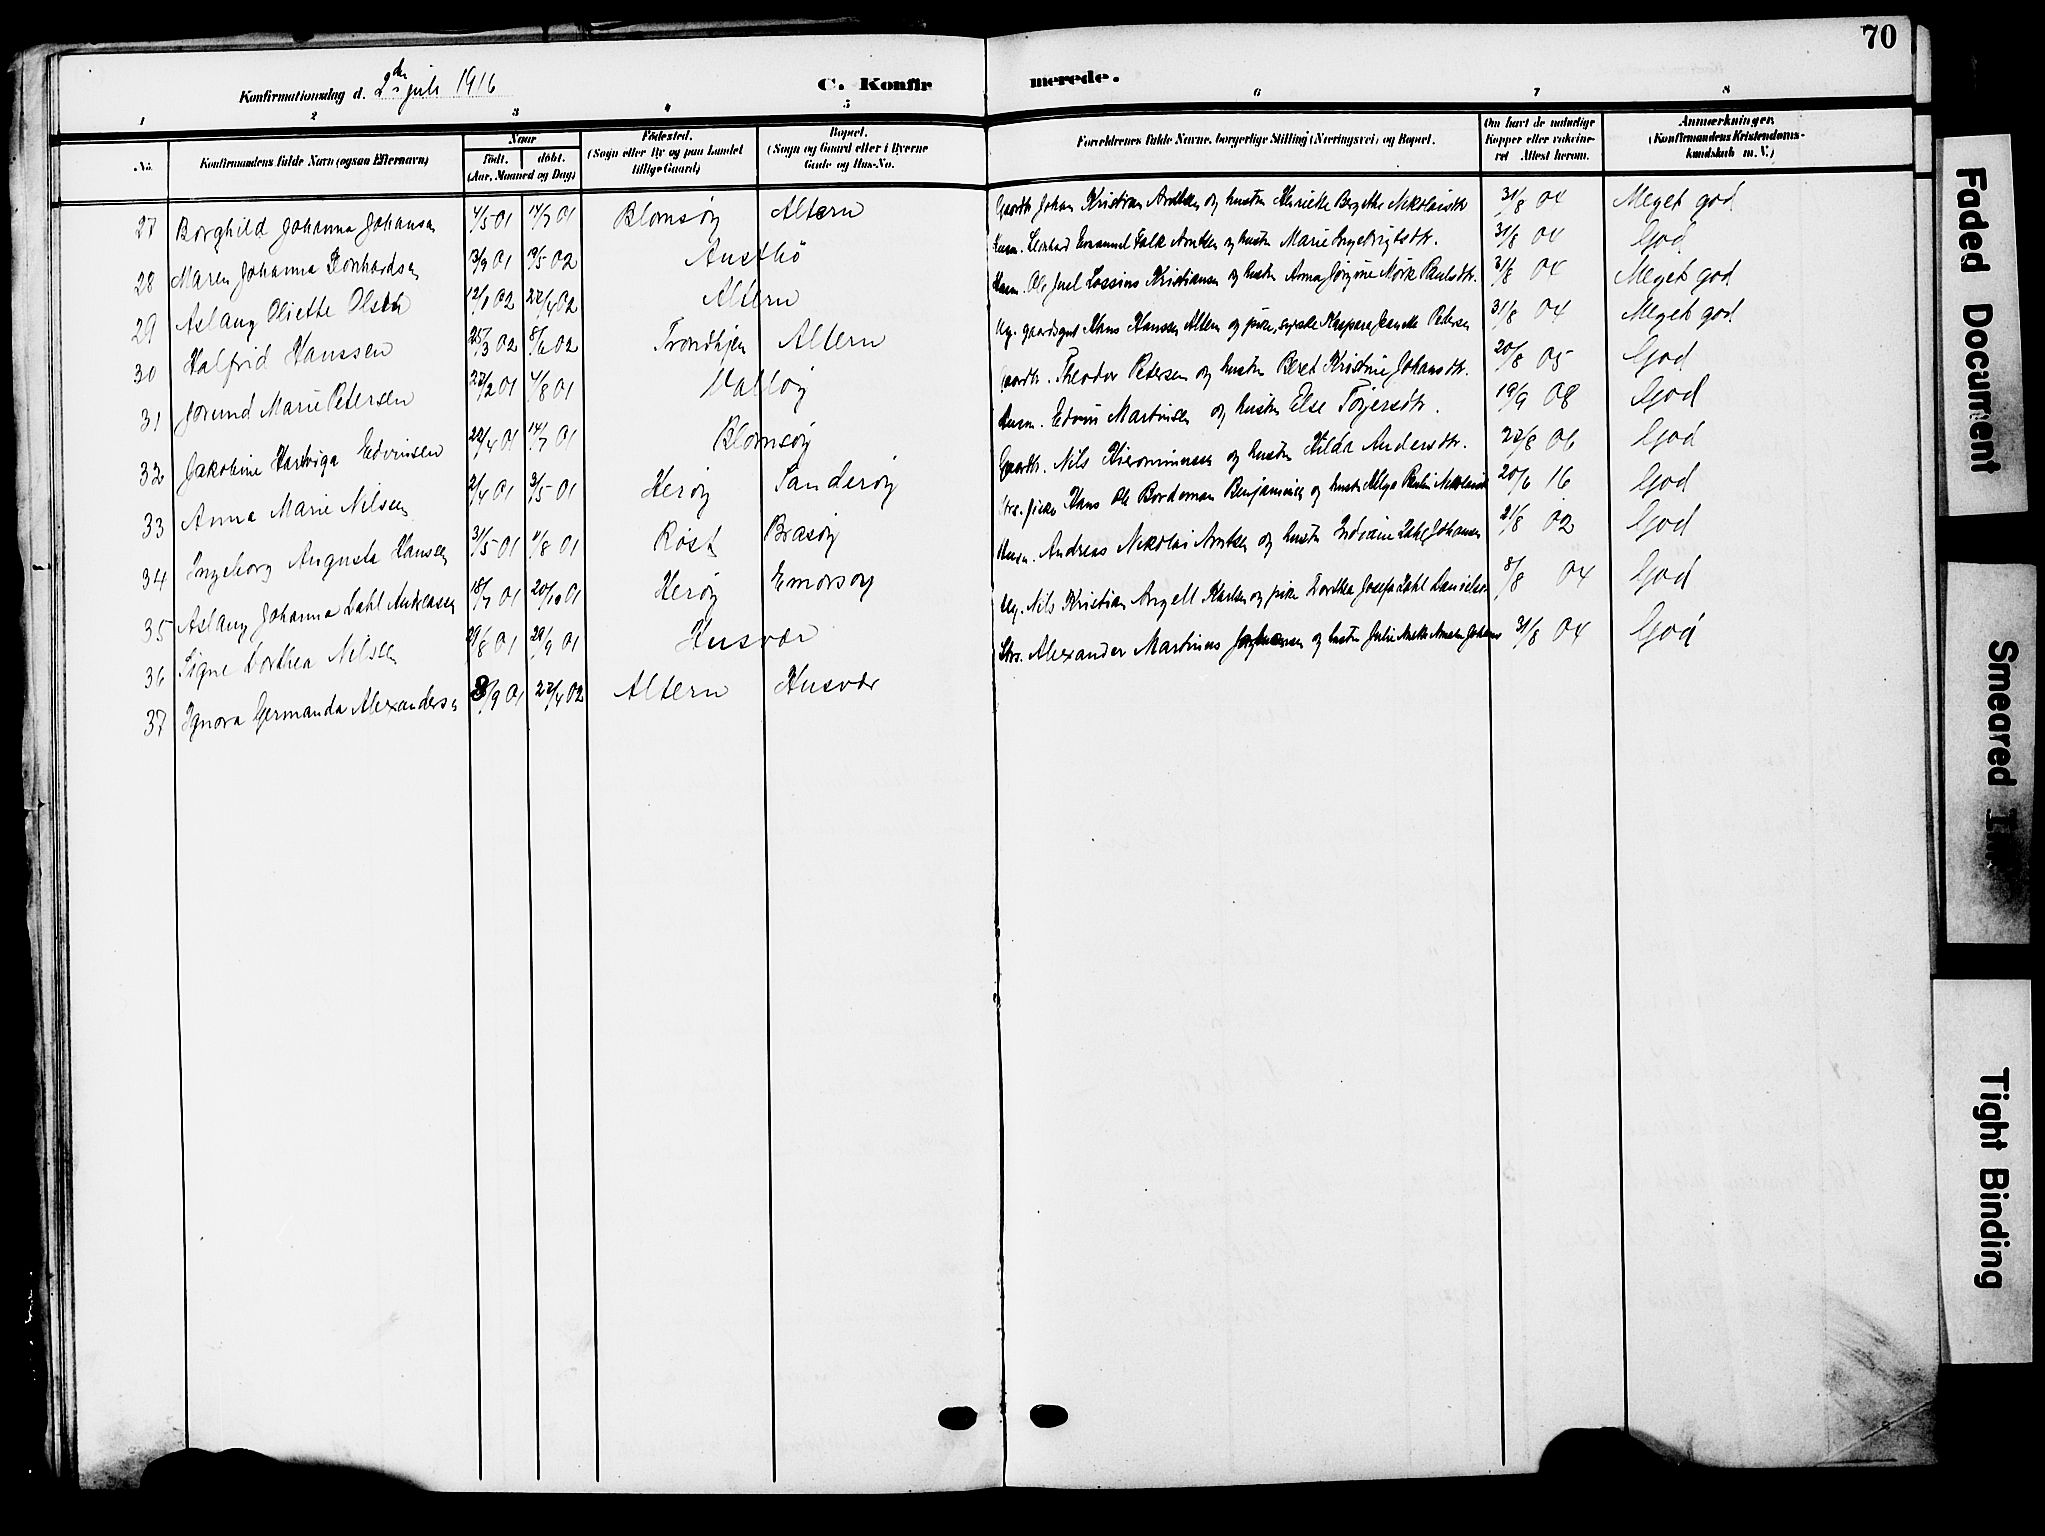 70
Konfirmationsdag d. 2den juli 1916
C. Konfirmerede.
1 2 3 4 5 6 7 8
No.
Konfirmandens fulde Navn (ogsaa Efternavn)
Naar
født. døbt.
(Aar, Maaned og Dag)
Fødested.
(Sogn eller By og paa Landet
tillige Gaard)
Bopæl.
(Sogn og Gaard eller i Byerne
Gade og Hus-No.
Forældrenes fulde Navne, borgerlige Stilling (Næringsvei) og Bopæl.
Om havt de naturlige
Kopper eller vakcine-
ret Attest herom.
Anmærkninger.
(Konfirmandens Kristendoms-
kundskab m. V.)
27 Borghild Johanna Johansen 4/5 01 14/7 01 Blomsøy Altern Gaardbr. Johan Kristian Arntsen og hustru Henriette Bergitte Nikolaisdtr 31/8 04 Meget god
28 Maren Johanna Leonhardsen 13/9 01 19/5 02 Austbø Husm. Leonhard Emanuel Falk Arntsen og hustru Marie Ingebrigtsdtr. 31/8 04 God
29 Aslaug Oliette Olsen 12/1 02 27/4 02 Altern Husm. Ole Juel Lossius Kristiansen og hustru Anna Jørgine Mørk Paulsdtr. 31/8 04 Meget god
30 Halfrid Hanssen 25/3 02 8/6 02 Trondhjem Altern Ug. gaardsgut Hans Hanssen Altern og pike, syerske Kaspara Jeanette Petersen 31/8 04 Meget god
31 Jorund Marie Petersen 22/2 01 4/8 01 Valløy Gaardbr. Theodor Petersen og hustru Beret Kristine Johansdtr. 20/8 05 God
32 Jakobine Hartviga Edvinsen 22/4 01 14/7 01 Blomsøy Husm. Edvin Martinsen og hustru Else Torgersdtr. 19/9 08 God
33 Anna Marie Nilsen 2/4 01 3/5 01 Herøy Sanderøy Gaardbr. Nils Hieronimussen og hustru Hilda Andersdtr. 22/8 06 God
34 Ingeborg Augusta Hansen 31/5 01 4/8 01 Røst Brasøy Hans Ole Bordeman Benjaminsen og hustru Helga 20/6 16 God
35 Aslaug Johanna Dahl Andreasen 18/7 01 20/10 01 Herøy Husm. Andreas Nikolai Arntsen og hustru Johansen 21/8 02 God
36 Signe Dorthea Nilsen 29/8 01 29/9 01 Husvær Ug. Nils Kristian Angell Karlsen og pike Dorthea Josefa Dahl Danielsen 8/8 04 God
37 Ignora Germanda Alexandersen 8/9 01 27/4 02 Altern Husvær Alexander Martinus og hustru 31/8 04 God
Faded Document
Smeared Ink
Tight Binding